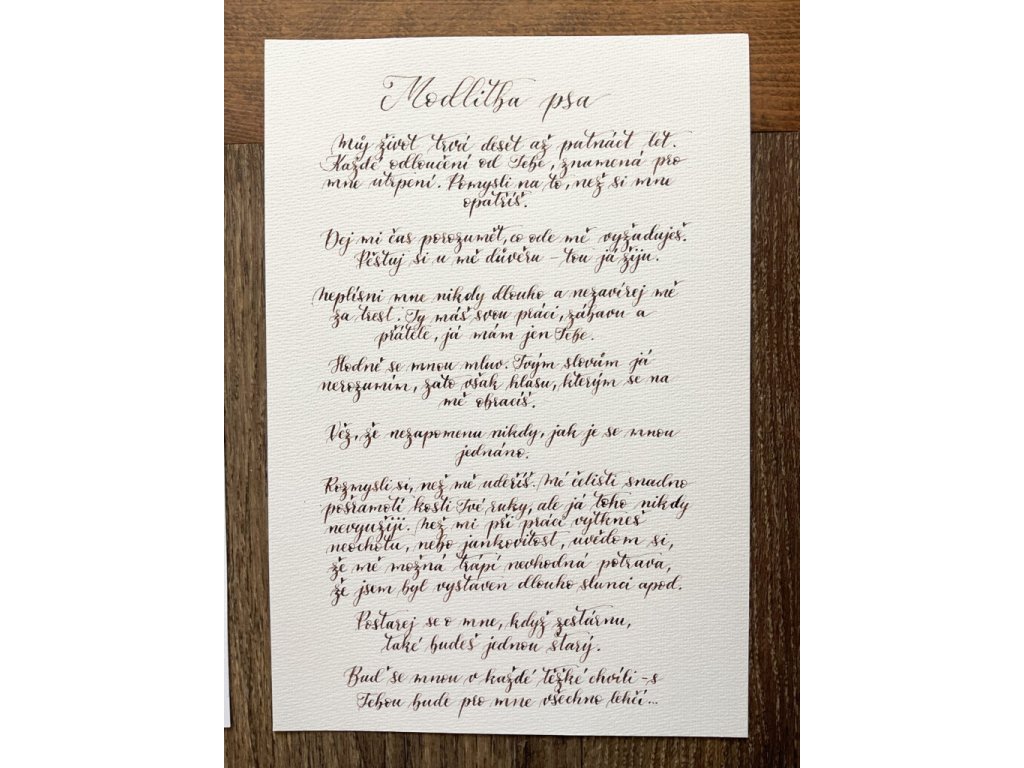 Modlitba psa
Můj život trvá deset až patnáct let.
Každé odloučení od Tebe, znamená pro
mne utrpení. Pomysli na to, než si mne
opatříš.
Dej mi čas porozumět, co ode mě vyžaduješ.
Pěstuj si u mě důvěru - tou já žiju.
Neplísni mne nikdy dlouho a nezavírej mě
za trest. Ty máš svou práci, zábavu a
přátele, já mám jen Tebe.
Hodně se mnou mluv. Tvým slovům já
nerozumím, zato však hlasu, kterým se na
mě obracíš.
Věz, že nezapomenu nikdy, jak je se mnou
jednáno.
Rozmysli si, než mě udeříš. Mé čelisti snadno
pošramotí kosti Tvé ruky, ale já toho nikdy
nevyužiji. Než mi při práci vytkneš
neochotu, nebo jankovitost, uvědom si,
že mě možná trápí nevhodná potrava,
že jsem byl vystaven dlouho slunci apod.
Postarej se o mne, když zestárnu,
také budeš jednou starý.
Buď se mnou v každé těžké chvíli - s
Tebou bude pro mne všechno lehčí...